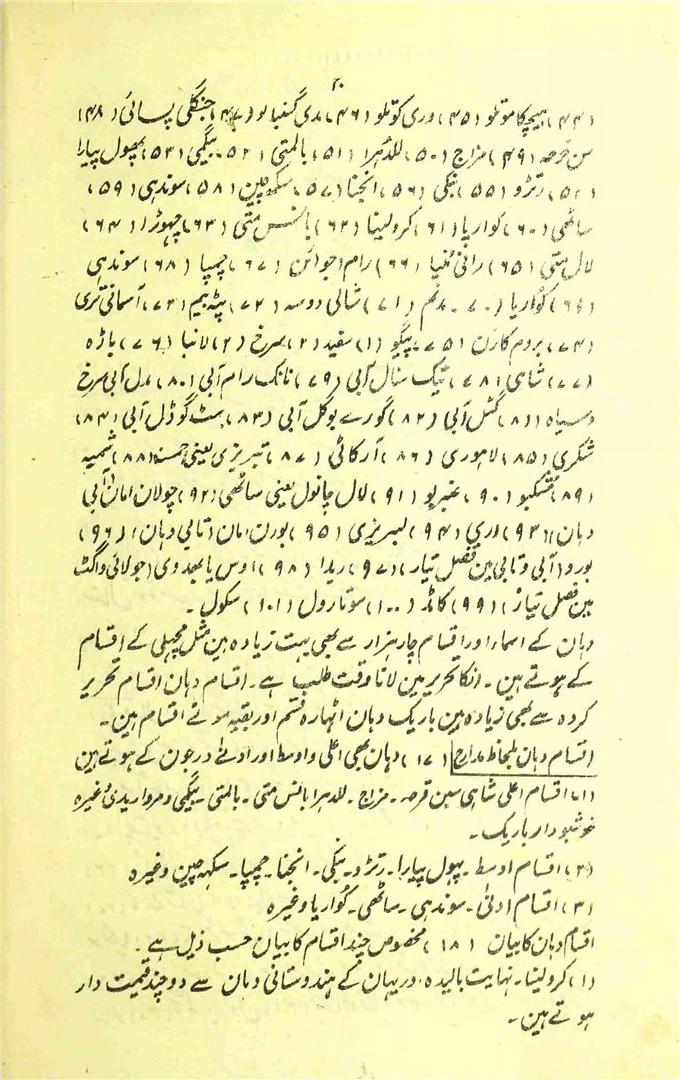 ۲۰
(۴۴) ہیچکا موتلو (۴۵) وری کوتلو (۴۶) مدی گنبالو (۴۷) جنگلی پسائی (۴۸)
سن خرصہ (۴۹) مزاج (۵۰) للدہرا (۵۱) بالمتی (۵۲) بیگمی (۵۳) پھول پیارا
(۵۴) رتڑو (۵۵) بنکی (۵۶) انجنا (۵۷) سکھ چین (۵۸) سوندہی (۵۹)
ساٹھی (۶۰) کواریا (۶۱) کرولینا (۶۲) بانس متی (۶۳) چہوڑا (۶۴)
لال متی (۶۵) رانی منیا (۶۶) رام اجوائن (۶۷) چمپا (۶۸) سوندہی
(۶۹) کواریا (۷۰) (۷۱) شالی دوسہ (۷۲) پٹہ ہیم (۷۳) آسمانی تری
(۷۴) بروم کارن (۷۵) پیگیو (۱) سفید (۲) سرخ (۲) لانبا (۷۶) باڑہ
(۷۷) شاہی (۷۸) ٹیک سنال آبی (۷۹) نانک رام آبی (۸۰) مدل آبی سرخ
وسیاہ (۸۱) گٹل آبی (۸۲) گورے بوگل آبی (۸۳) ہٹ گوڈل آبی (۸۴)
شکری (۸۵) لاہوری (۸۶) آرکاٹی (۸۷) تبریزی یعنی حمسہ (۸۸) شمیہ
(۸۹) مشکبو (۹۰) عنبربو (۹۱) لال چانول یعنی ساٹھی (۹۲) چولان امان آبی
دہان) (۹۳) وری (۹۴) لبریزی (۹۵) بورن امان (تابی دہان) (۹۶)
بورو (آبی وتابی مین فصل تیار) (۹۷) ریدا (۹۸) اوس یا بھدوی (جولائی واگست
مین فصل تیار) (۹۹) کاٹڈ (۱۰۰) سوتارول (۱۰۱) سکول ۔
دہان کے اسماء اور اقسام چار ہزار سے بھی بہت زیادہ ہین مثل مچہلی کے اقسام
کے ہوتے ہین ۔ انکا تحریر مین لانا وقت طلب ہے ۔ اقسام دہان اقسام تحریر
کردہ سے بھی زیادہ ہین باریک دہان اٹہارہ قسم اور بقیہ موٹے اقسام ہین ۔
اقسام دہان بلحاظ مدارج (۱۷) دہان بھی اعلی واوسط اور ادنےٰ درجون کے ہوتے ہین
(۱) اقسام اعلی شاہی سین قرصہ ۔ مزاج ۔ للدہرا بانس متی ۔ بالمتی ۔ بیگمی ومروا ریدی وغیرہ
خوشبودار باریک ۔
(۲) اقسام اوسط ۔ پہول پیارا ۔ رتڑو ۔ بنکی ۔ انجنا ۔ چمپا ۔ سکہہ چین وغیرہ
(۳) اقسام ادنیٰ ۔ سوندہی ۔ ساٹھی ۔ کواریا وغیرہ
اقسام دہان کا بیان (۱۸) مخصوص چند اقسام کا بیان حسب ذیل ہے ۔
(۱) کرولینا ۔ نہایت بالیدہ ۔ دریہان کے ہندوستانی دہان سے دو چند قیمت دار
ہوتے ہین ۔